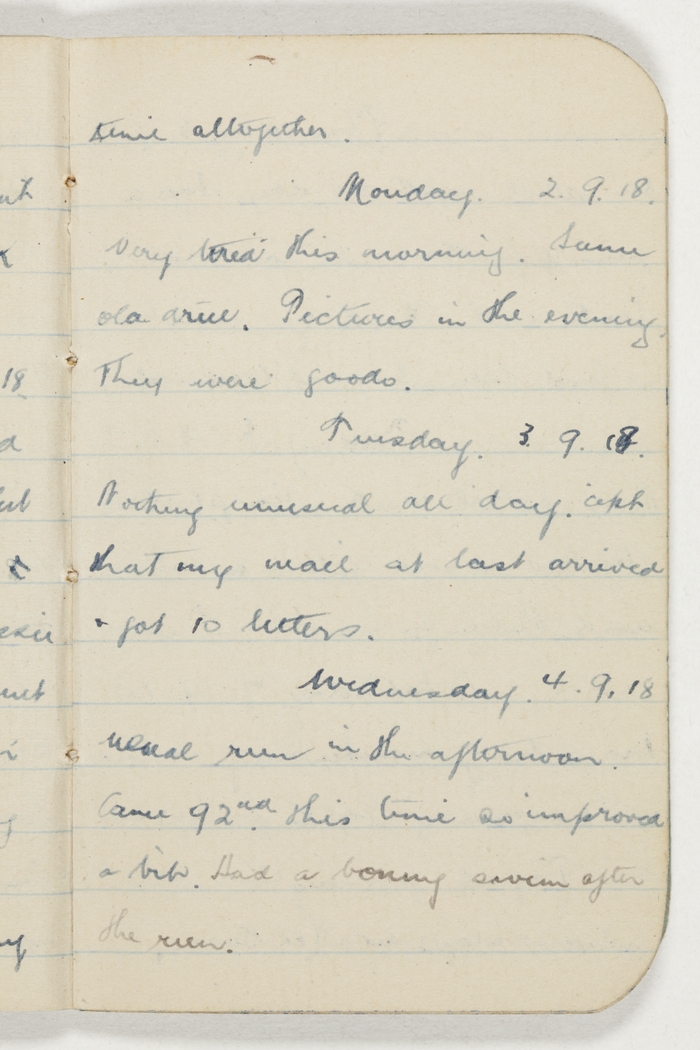 time altogether.
Monday. 2. 9. 18.
Very tired this morning. Same
old drill. Pictures in the evening.
They were goods.
Tuesday. 3. 9. 18.
Nothing unusual all day. cept
that my mail at last arrived
+ got 10 letters.
Wednesday. 4. 9. 18
usual run in the afternoon.
Came 92nd. this time so improved
a bit. Had a bonny swim after
the run.